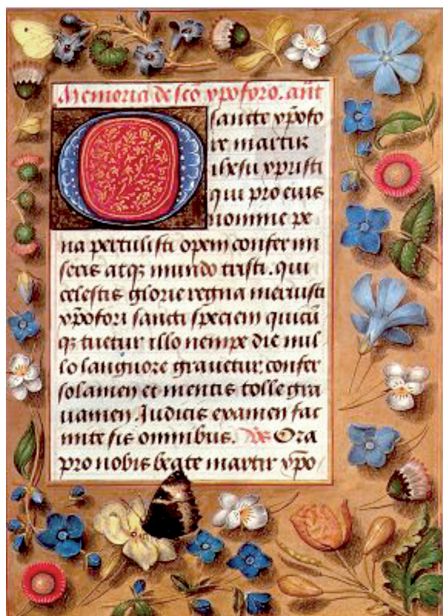 Memoria de scō xp̄oforo. añt
O sancte xp̄ofo
re martir
ihesu xp̄risti
qui pro eius
nomine pe
na pertulisti opem confer mi
seris atq; mundo tristi. qui
celestis glorie regna meruisti
xp̄ofori sancti speciem quicū
q; tuetur illo nempe die nul
lo languore grauetur confer
solamen et mentis tolle gra
uamen. Iudicis examen fac
mite sis omnibus. Vs Ora
pro nobis beate martir xp̄o